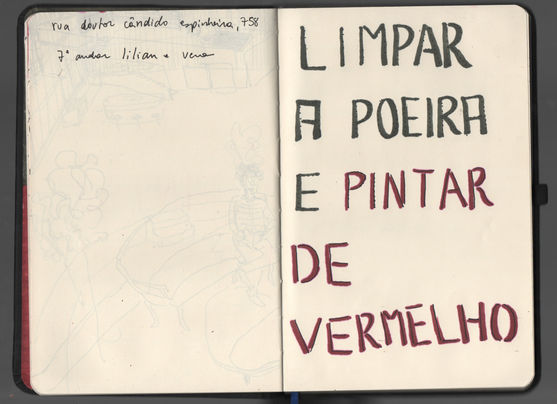 rua doutor cândido espinheira, 758
7º andar lilian e vera
LIMPAR
A POEIRA
E PINTAR
DE
VERMELHO